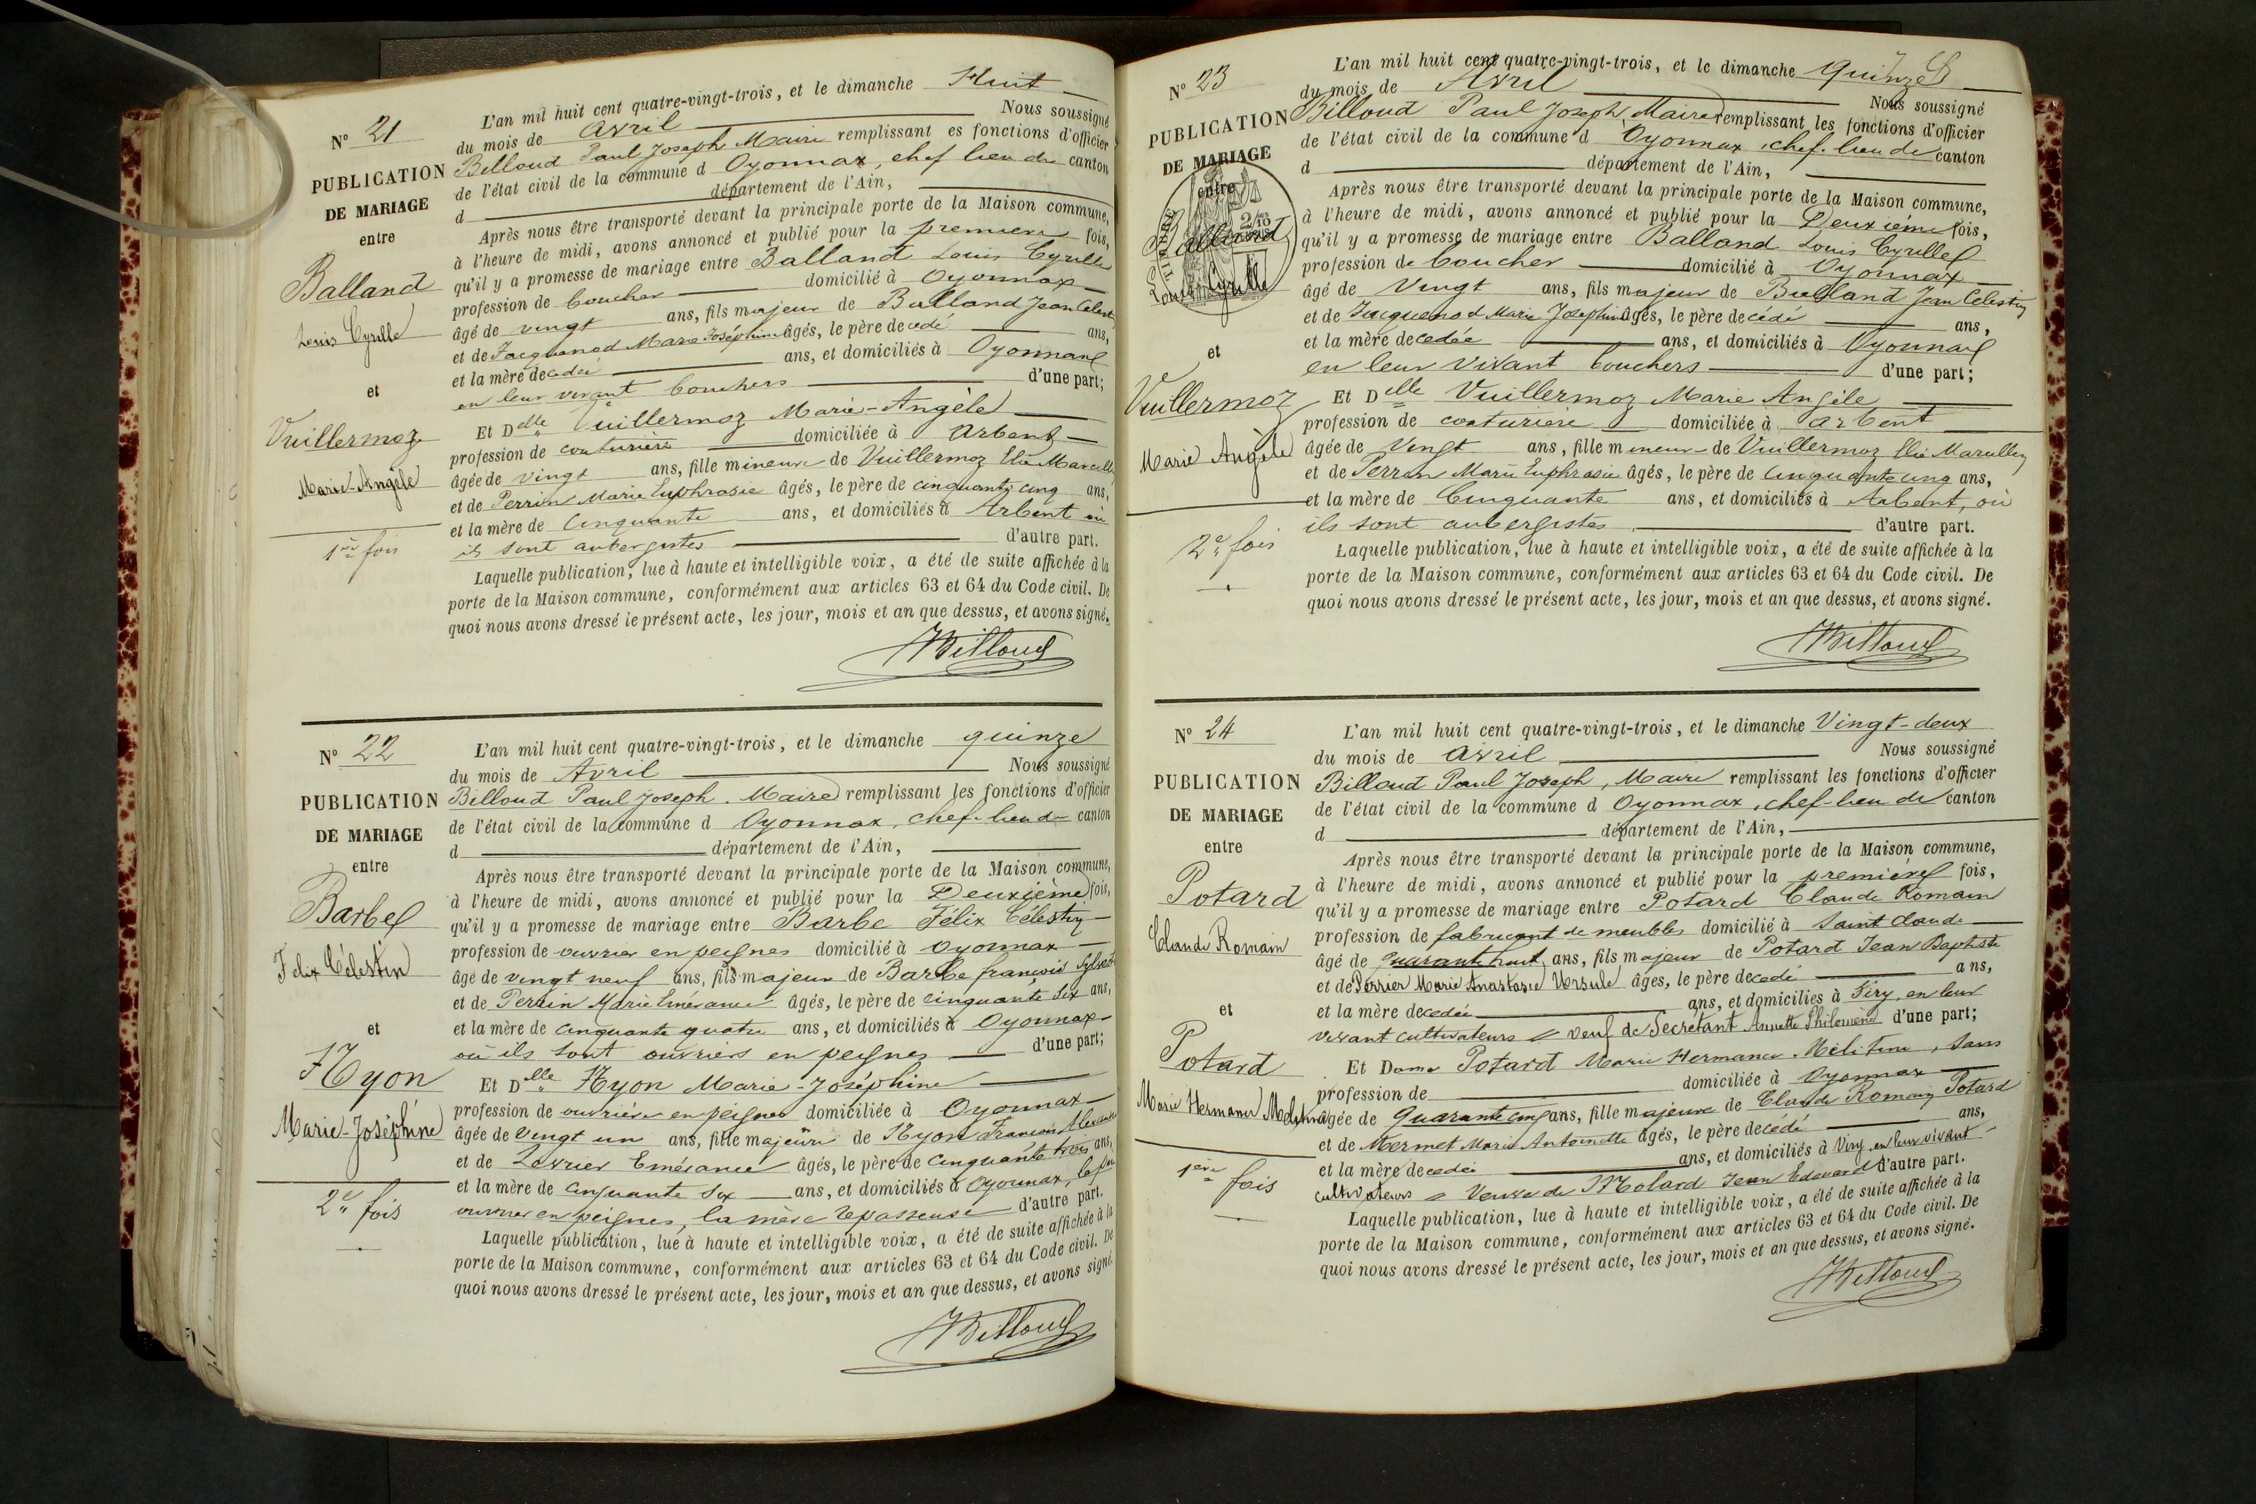 N° 21
PUBLICATION
DE MARIAGE
entre
Balland
Louis Cyrille
et
Vuillermoz
Marie-Angèle
1ère fois
L'an mil huit cent quatre-vingt-trois, et le dimanche Huit
du mois de Avril Nous soussigné
Billoud Paul Joseph Maire remplissant es fonctions d'officier
de l'état civil de la commune d Oyonnax, chef lieu de canton
d département de l'Ain,
Après nous être transporté devant la principale porte de la Maison commune,
à l'heure de midi, avons annoncé et publié pour la première fois,
qu'il y a promesse de mariage entre Balland Louis Cyrille
profession de boucher domicilié à Oyonnax
âgé de vingt ans, fils majeur de Balland Jean Célestin
et de Jacquenod Marie Joséphine âgés, le père decédé ans,
et la mère decedée ans, et domiciliés à Oyonnax
en leur vivant bouchers d'une part;
Et Delle Vuillermoz Marie-Angèle
profession de couturière domiciliée à Arbent
âgée de vingt ans, fille mineure de Vuillermoz Elie Marcellin
et de Perrin Marie Euphrasie âgés, le père de cinquante cinq ans,
et la mère de Cinquante ans, et domiciliés à Arbent où
ils sont aubergistes d'autre part.
Laquelle publication, lue à haute et intelligible voix, a été de suite affichée à la
porte de la Maison commune, conformément aux articles 63 et 64 du Code civil. De
quoi nous avons dressé le présent acte, les jour, mois et an que dessus, et avons signé.
Billoud
N° 22
PUBLICATION
DE MARIAGE
entre
Barbe
Felix Célestin
et
Hyon
Marie-Joséphine
2e fois
L'an mil huit cent quatre-vingt-trois, et le dimanche quinze
du mois de Avril Nous soussigné
Billoud Paul Joseph. Maire remplissant les fonctions d'officier
de l'état civil de la commune d Oyonnax, chef-lieu de canton
d département de l'Ain,
Après nous être transporté devant la principale porte de la Maison commune,
à l'heure de midi, avons annoncé et publié pour la Deuxième fois,
qu'il y a promesse de mariage entre Barbe Félix Célestin
profession de ouvrier en peignes domicilié à Oyonnax
âgé de vingt neuf ans, fils majeur de Barbe françois Sylvestre
et de Perrin Marie Emérance âgés, le père de cinquante six ans,
et la mère de cinquante quatre ans, et domiciliés à Oyonnax
où ils sont ouvriers en peignes d'une part;
Et Delle Hyon Marie-Joséphine
profession de ouvrière en peignes domiciliée à Oyonnax
âgée de vingt un ans, fille majeure de Hyon François Alexandre
et de Levrier Emérance âgés, le père de cinquante trois ans,
et la mère de cinquante six ans, et domiciliés à Oyonnax, le père
ouvrier en peignes, la mère repasseuse d'autre part.
Laquelle publication, lue à haute et intelligible voix, a été de suite affichée à la
porte de la Maison commune, conformément aux articles 63 et 64 du Code civil. De
quoi nous avons dressé le présent acte, les jour, mois et an que dessus, et avons signé.
Billoud
N° 23
PUBLICATION
DE MARIAGE
entre
Balland
Louis Cyrille
et
Vuillermoz
Marie Angèle
2e fois
L'an mil huit cent quatre-vingt-trois, et le dimanche quinze
du mois de Avril Nous soussigné
Billoud Paul Joseph, Maire remplissant les fonctions d'officier
de l'état civil de la commune d Oyonnax, chef-lieu de canton
d département de l'Ain,
Après nous être transporté devant la principale porte de la Maison commune,
à l'heure de midi, avons annoncé et publié pour la Deuxième fois,
qu'il y a promesse de mariage entre Balland Louis Cyrille
profession de boucher domicilié à Oyonnax
âgé de Vingt ans, fils majeur de Balland Jean Célestin
et de Jacquenod Marie Joséphine âgés, le père decédé ans,
et la mère decedée ans, et domiciliés à Oyonnax
en leur vivant bouchers d'une part;
Et Delle Vuillermoz Marie Angèle
profession de couturière domiciliée à Arbent
âgée de Vingt ans, fille mineure de Vuillermoz Elie Marcellin
et de Perrin Marie Euphrasie âgés, le père de cinquante cinq ans,
et la mère de Cinquante ans, et domiciliés à Arbent, où
ils sont aubergistes d'autre part.
Laquelle publication, lue à haute et intelligible voix, a été de suite affichée à la
porte de la Maison commune, conformément aux articles 63 et 64 du Code civil. De
quoi nous avons dressé le présent acte, les jour, mois et an que dessus, et avons signé.
Billoud
N° 24
PUBLICATION
DE MARIAGE
entre
Potard
Claude Romain
et
Potard
Marie Hermance Mélitine
1ère fois
L'an mil huit cent quatre-vingt-trois, et le dimanche Vingt-deux
du mois de Avril Nous soussigné
Billoud Paul Joseph, Maire remplissant les fonctions d'officier
de l'état civil de la commune d Oyonnax, chef-lieu de canton
d département de l'Ain,
Après nous être transporté devant la principale porte de la Maison commune,
à l'heure de midi, avons annoncé et publié pour la première fois,
qu'il y a promesse de mariage entre Potard Claude Romain
profession de fabricant de meubles domicilié à Saint Claude
âgé de quarante huit ans, fils majeur de Potard Jean Baptiste
et de Perrier Marie Anastasie Ursule âgés, le père decedé ans,
et la mère decedée ans, et domiciliés à Viry, en leur
vivant cultivateurs veuf de Secrétant Annette Philomène d'une part;
Et Dame Potard Marie Hermance Mélitine, sans
profession de domiciliée à Oyonnax
âgée de Quarante cinq ans, fille majeure de Claude Romain Potard
et de Mermet Marie Antoinette âgés, le père decédé ans,
et la mère decedée ans, et domiciliés à Viry en leur vivant
cultivateurs Veuve de Molard Jean Edouard d'autre part.
Laquelle publication, lue à haute et intelligible voix, a été de suite affichée à la
porte de la Maison commune, conformément aux articles 63 et 64 du Code civil. De
quoi nous avons dressé le présent acte, les jour, mois et an que dessus, et avons signé.
Billoud